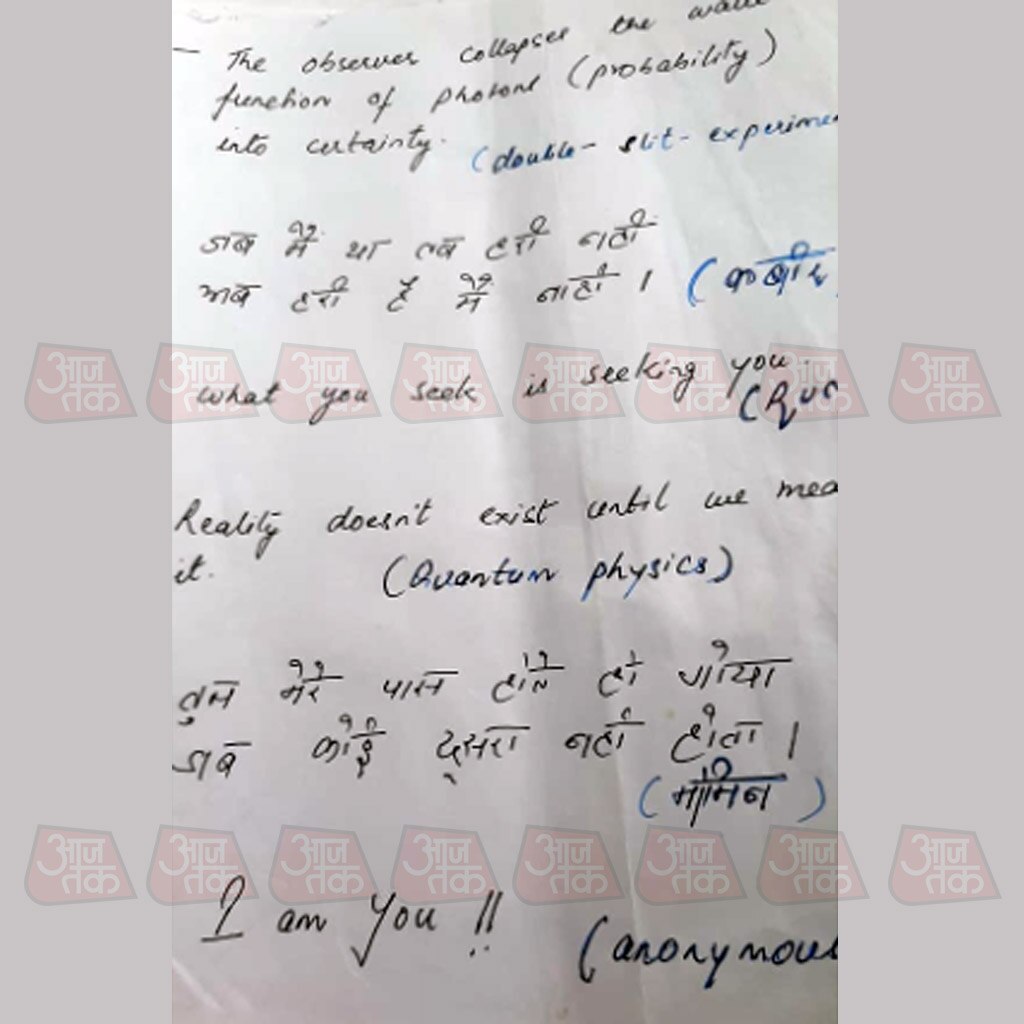 - The observer collapses the wave
function of photons (probability)
into certainty. (double-slit-experime
जब मैं था तब हरी नहीं
अब हरी है मैं नाही । (कबीर
what you seek is seeking you.
(Rum
Reality doesn't exist until we mea
it. (Quantum physics)
तुम मेरे पास होते हो गोया
जब कोई दूसरा नहीं होता ।
(मोमिन)
I am you !!
(anonymous
आज तक